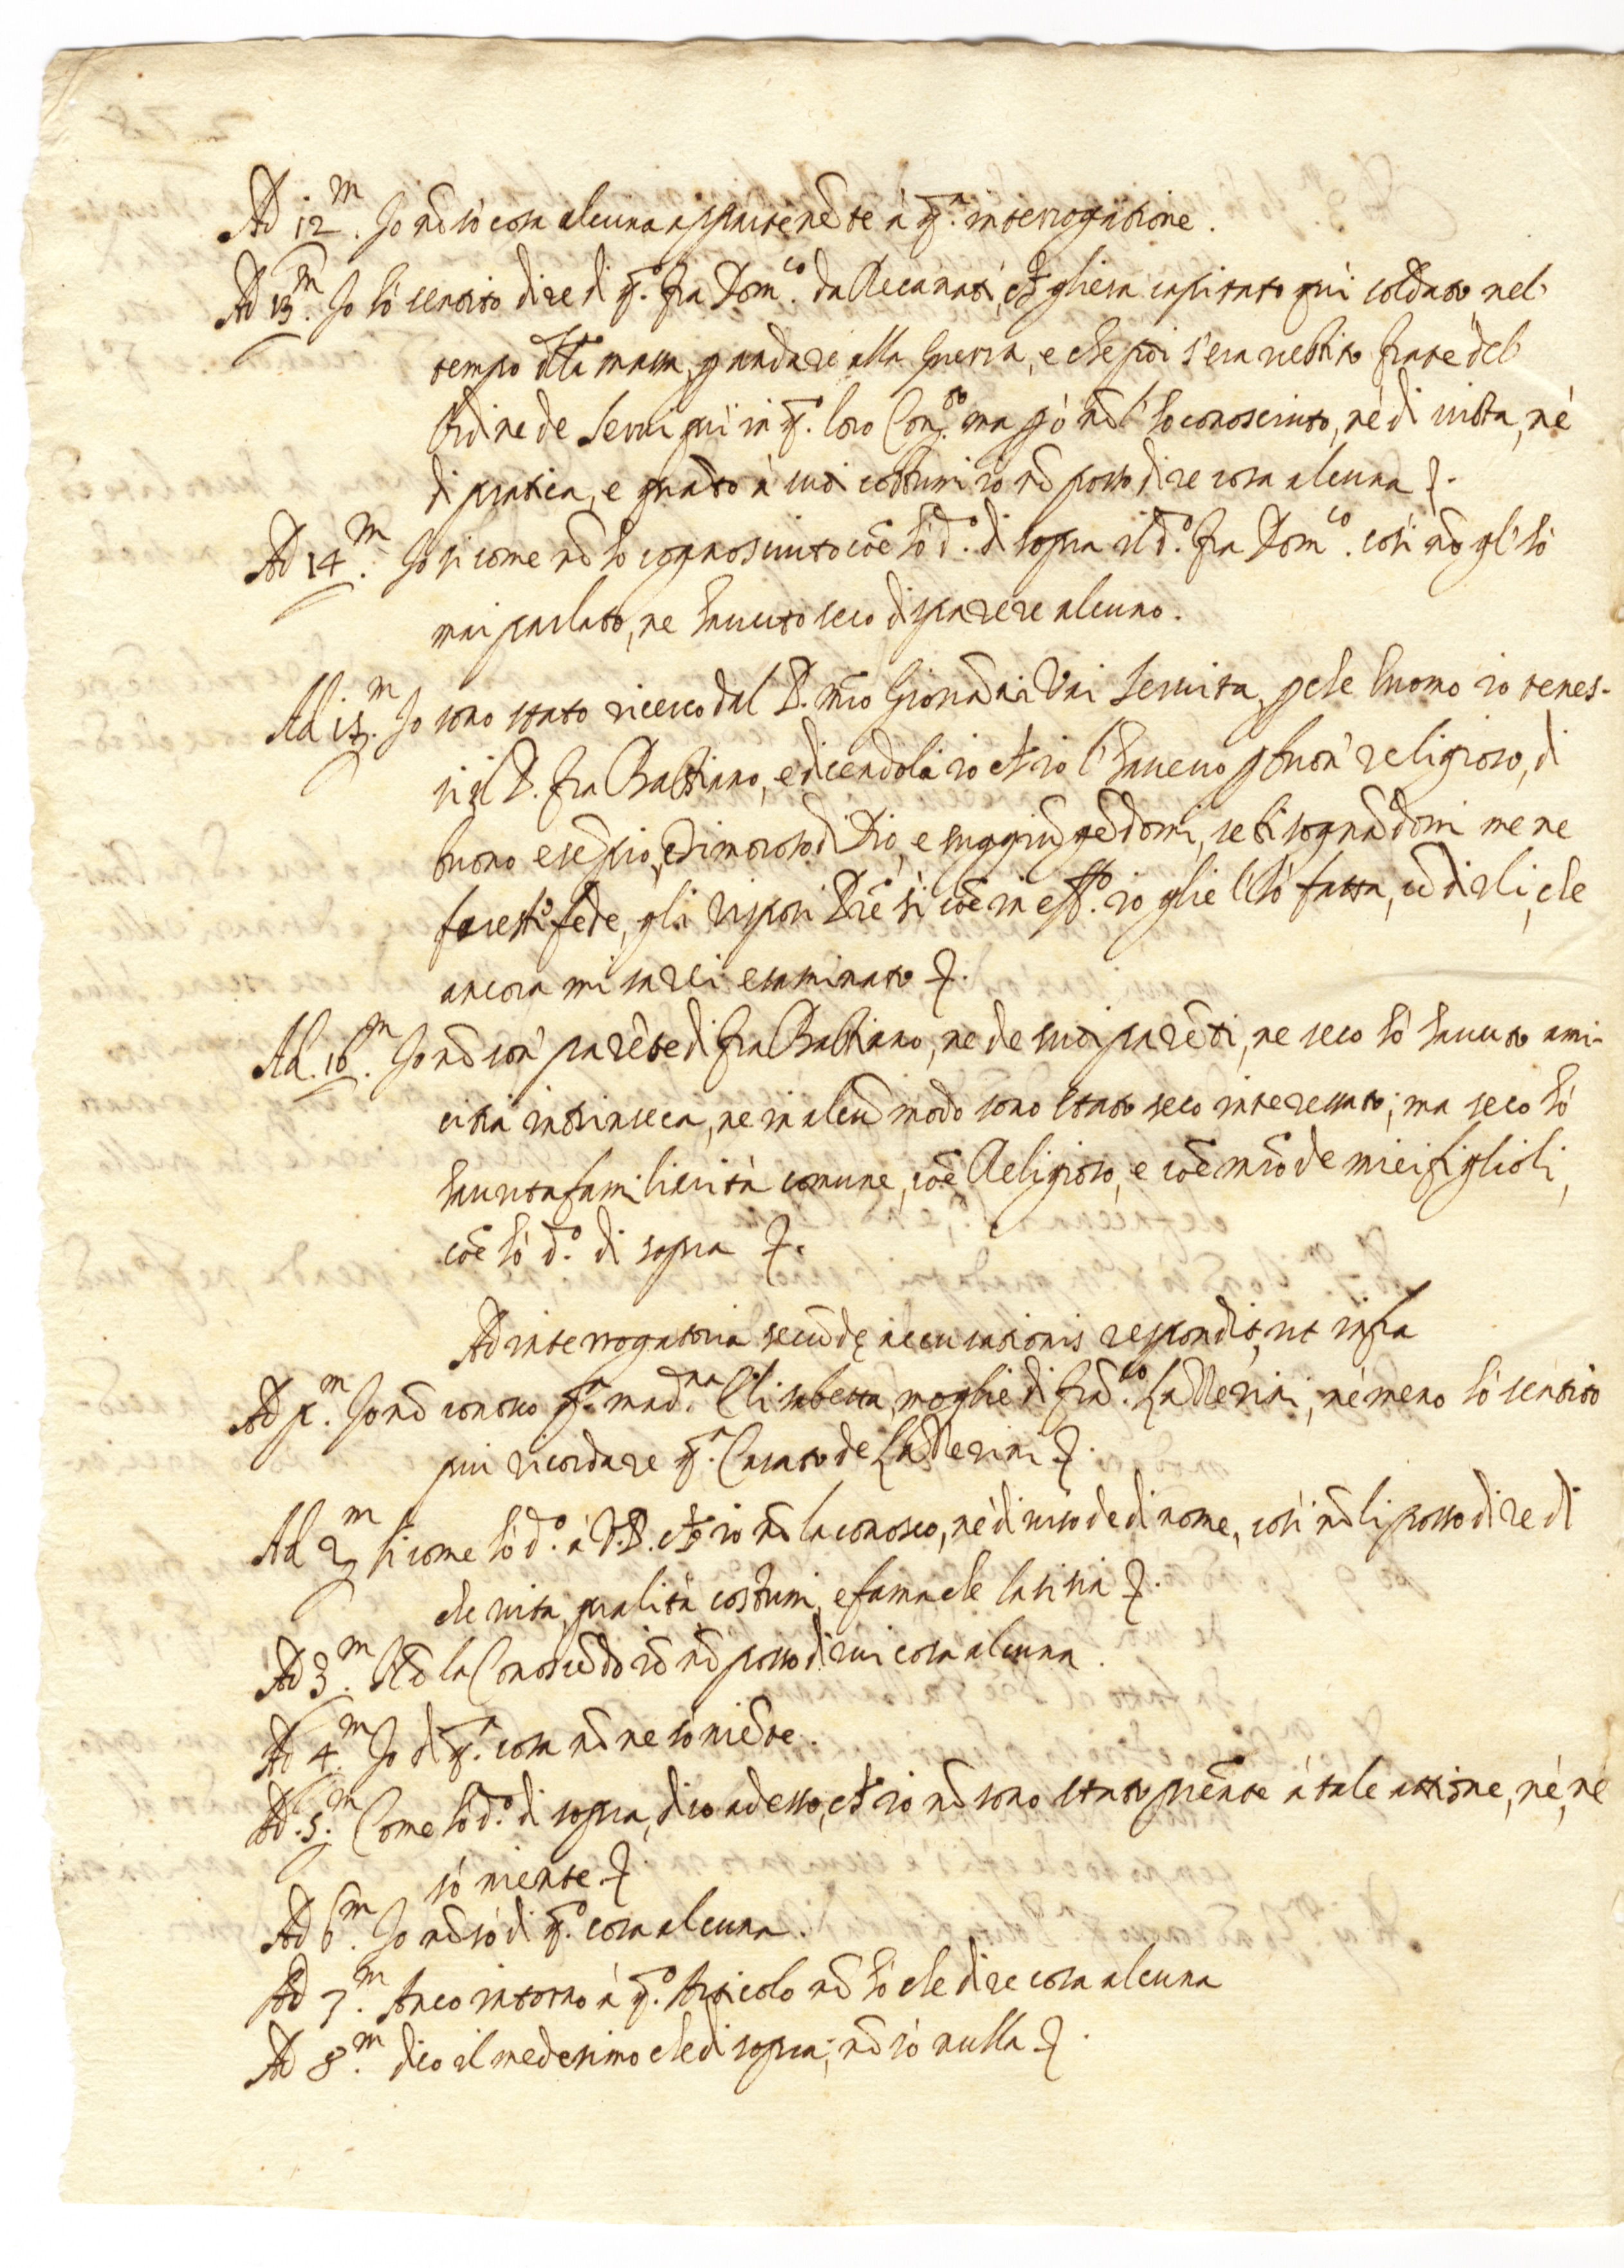 Ad 12.m Io nõ sò cosa alcuna appartenẽte à q.a interrogatione.
Ad 13.m Io hò sentito dire di q.o fra Dom.co da Recanati, ch'egli era capitato quì soldato nel
tempo d̃lla massa, p andare alla Guerra, e che poi s'era vestito frate del
Ordine de Serui quì in q.o loro Con.to ma pò nõ l'ho conosciuto, nè di uista, nè
di pratica, e quãto à suoi costumi io nõ posso dire cosa alcuna
Ad 14.m Io si come nõ ho cognosciuto coẽ hò d.o di sopra il d.o fra Dom.co così nõ gl'hò
mai parlato, ne hauuto seco disparere alcuno.
Ad 15.m Io sono stato ricerco dal P. mrõ Giouãni Vai Seruita, p che huomo io tenes-
si il P. fra Bastiano, e dicendoli io ch'io l'haueuo p buon' religioso, di
buono esẽpio, e timoroso di Dio, e suggiũgẽdomi, se bisognãdomi me ne
faresti fede, gli risposi Prẽ sì, coẽ in eff.to io glie l'hò fatta, cõ dirli, che
ancora mi sarei esaminato
Ad. 16.m Io nõ son' parẽte di fra Bastiano, ne de suoi parẽti, ne seco hò hauuto ami-
citia intrinseca, ne in alcũ modo sono stato seco interessato; ma seco hò
hauuta familiarità comune, coẽ Religioso, e coẽ mrõ de miei figlioli,
coẽ hò d.o di sopra
Ad interrogatoria secũdę accusationis respondit, ut infra
Ad p.m Io nõ conosco q.a mad.na Elisabetta, moglie di frã.co Ladderini, nè meno hò sentito
più ricordare q.a Casato de Ladderini
Ad 2.m si come hò d.o à V.P. ch'io nõ la conosco, nè di uiso ne di nome, così nõ li posso dire di
che uita, qualità costumi, e fama che la si sia
Ad 3.m Nõ la Conoscẽdo io nõ posso dirui cosa alcuna.
Ad 4.m Io di q.a cosa nõ ne sò niẽte.
Ad .5.m Come hò d.o di sopra, dico adesso, ch'io nõ sono stato presẽte à tale attione, nè, ne
sò niente.
Ad 6.m Io nõ sò di q.o cosa alcuna.
Ad 7.m Anco intorno à q.o Articolo nõ hò che dire cosa alcuna
Ad 8.m dico il medesimo che di sopra; nõ sò nulla